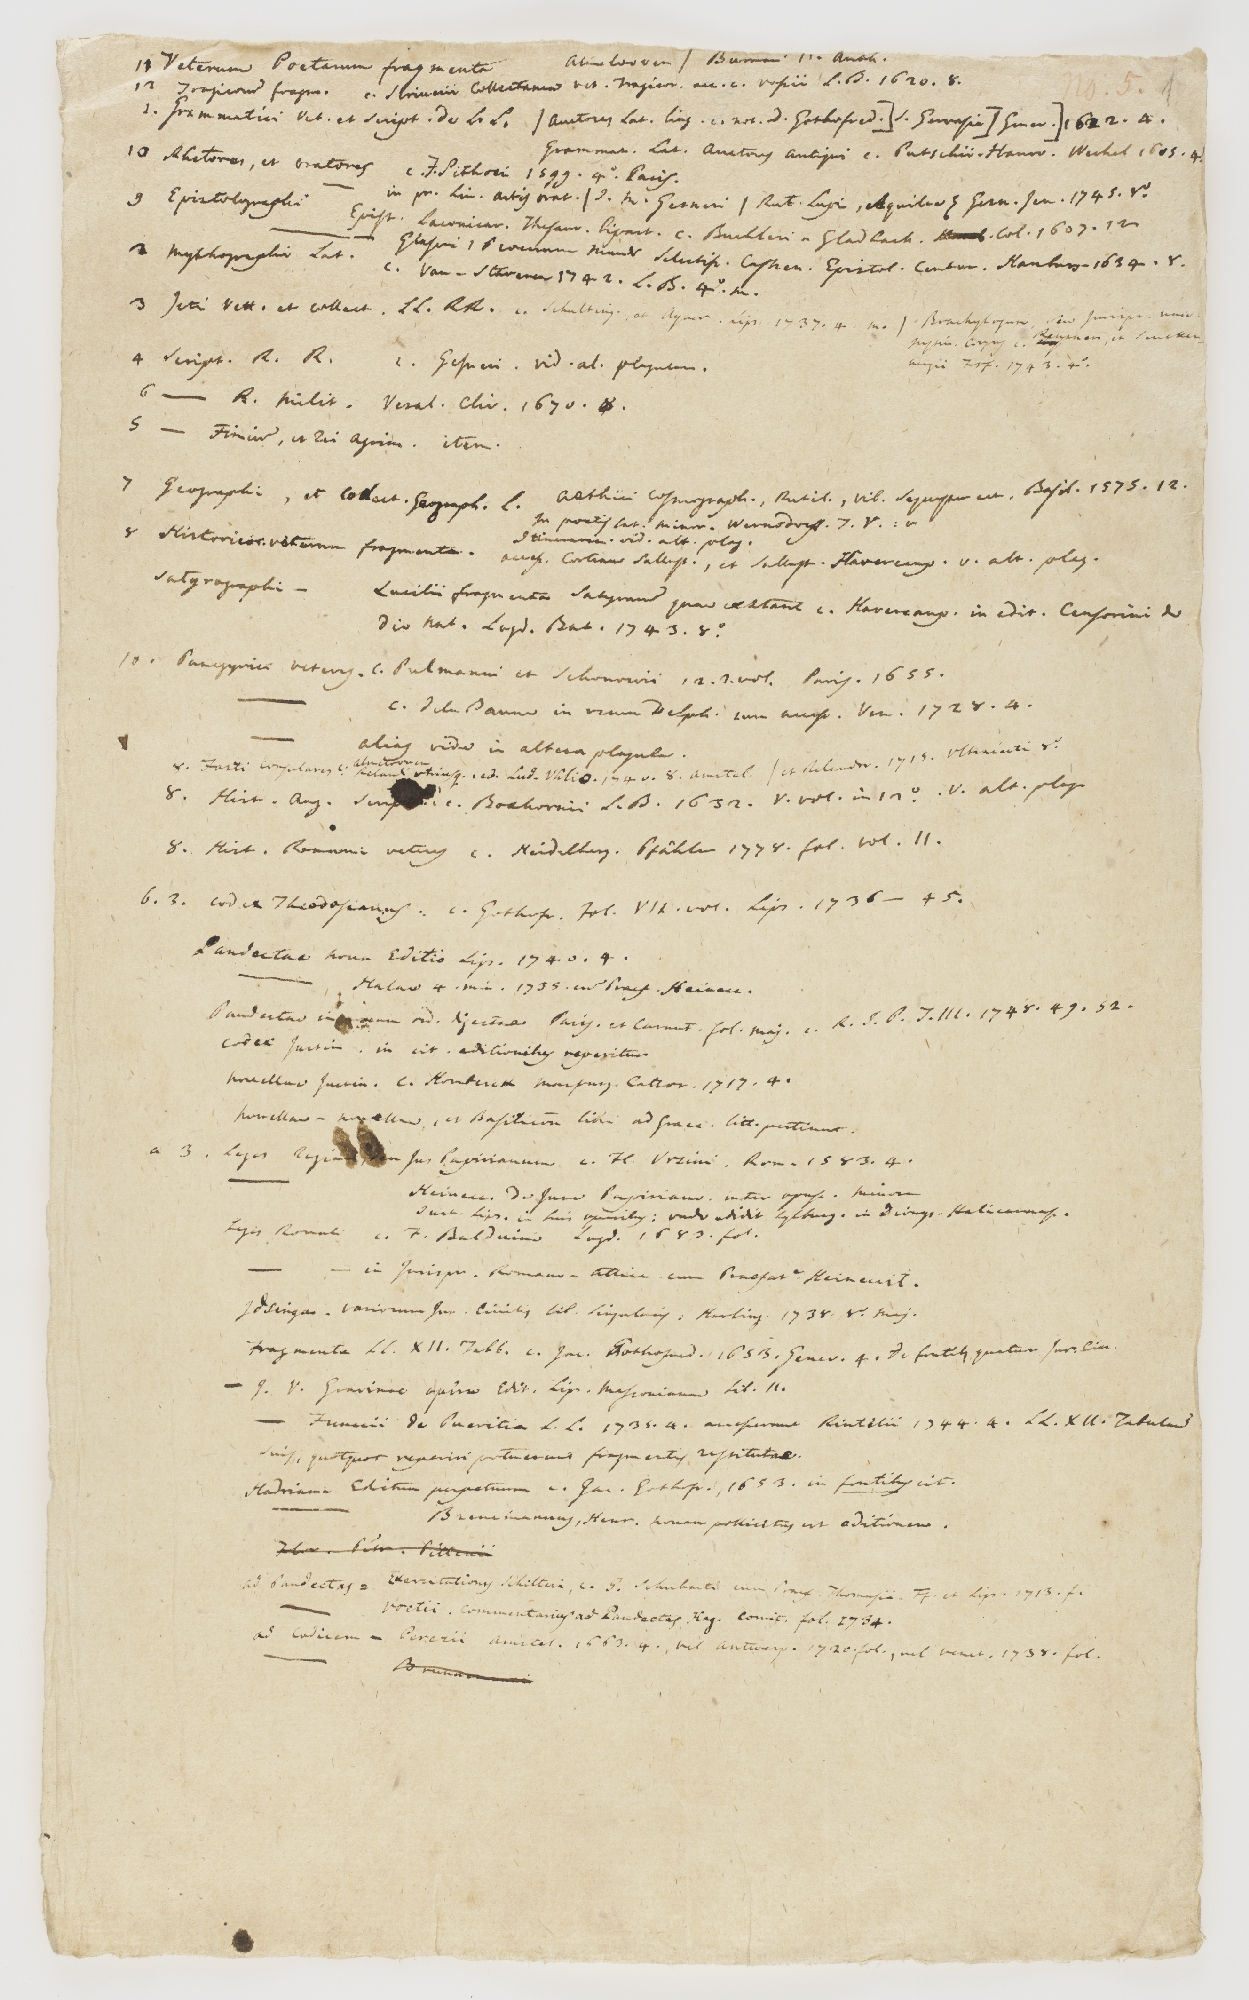 No. 5.
11 Veterum Poetarum fragmenta Almeloveen / Burmani Anth.
12 Tragicorum fragm. c. Scriverii Collectanea vet. Tragicor. acc. c. Vossii L. B. 1620. 8.
1. Grammatici Vet. et Script. de L. L. / Auctores Lat. ling. c. not. d. Gothofred. ] S. Gervasii ] Genev. ] 1622. 4.
Grammat. Lat. Auctores antiqui c. Putschii. Hanov. Wechel 1605. 4.
10 Rhetores, et oratores c. F. Pithoei 1599. 4º. Paris.
— in pr. lin. artis orat. / J. M. Gesneri / Rut. Lupi, Aquilae Gesn. Jen. 1745. 8º
9 Epistolographi Epist. Laconicar. Thesaur. c. Buchleri a Gladbach. Col. 1607. 12
Glaseri Selectiss. Epistol. Centur. Hamburg 1634. 8.
2 Mythographi Lat. c. Van Staveren 1742. L. B. 4º. m.
3 Jcti Vett. et collect. LL. RR. c. Schulting. et Ayrer. Lips. 1737. 4. m. / Brachylogum, sive Jurispr.
Corpus c. Reusneri, et Sencken-
1743. 4º.
4 Script. R. R. c. Gesneri. vid. al. plagulam.
6 — R. Milit. Vesal. Cliv. 1670. 8.
5 — Finium, et Rei Agrim. item.
7 Geographi, et Collect. Geograph. L. Aethici Cosmograph., Rutil., Vib. Sequester etc. Basil. 1575. 12.
In poetis Lat. minor. Wernsdorf. T. V.
Itineraria vid. alt. plag.
8 Historicor. veterum fragmenta. access. Cortiano Sallust., et Sallust. Havercamp. v. alt. plag.
Satyrographi — Lucilii fragmenta Satyrarum quae exstant c. Havercamp. in edit. Censorini de
Die Nat. Lugd. Bat. 1743. 8º.
10. Panegyrici veteres. c. Pulmanni et Schonovii 12. 2. vol. Paris. 1655.
— c. De la Baune in usum Delph. cum Ven. 1728. 4.
— alias vide in altera plagula.
8. Fasti Consulares c. Almeloveen 1740. 8. Amstel. / et Relandi. 1715. Ultraiecti 8º
8. Hist. Aug. Script. c. Boxhornii L. B. 1632. V. vol. in 12º. v. alt. plag
8. Hist. Romanae veteres c. Heidelberg. Pfähler 1778. fol. vol. II.
6. 3. Codex Theodosianus. c. Gothofr. Fol. VII. vol. Lips. 1736 — 45.
Pandectae nova Editio Lips. 1740. 4.
— Halae 4. min. 1735. cum Praef. Heinecc.
Pandectae in novum ord. digestae Paris. et Carnut. fol. maj. c. R. J. P. T. III. 1748. 49. 52.
Codex Justin. in cit. editionibus reperitur
Novellae Justin. c. Hombergk Marpurg. Cattor. 1717. 4.
Novellae — novellae, et Basilicon libri ad Graec. litt. pertinent.
a 3. Leges Regiae, Jus Papirianum c. Fl. Ursini. Rom. 1583. 4.
— Heinecc. De Jure Papiriano inter opusc. minora
in suis operibus; unde edidit Sylburg. in Dionys. Halicarnass.
Leges Romuli c. F. Balduini Lugd. 1583. fol.
— — in Jurispr. Romana Attica cum Praefat. Heineccii.
Jdsinga. Variorum Jur. Civilis lib. singularis. Harling. 1738. 8. maj.
Fragmenta LL. XII. Tabb. c. Jac. Gothofred. 1653. Genev. 4. De fontibus quatuor Jur. Civ.
— J. V. Gravinae opera Edit. Lips. Mascoviana lib. II.
— Funccii de Pueritia L. L. 1735. 4. Rintelii 1744. 4. LL. XII. Tabularum
Suis, quotquot reperiri potuerunt fragmentis restitutae.
Hadriani Edictum perpetuum c. Jac. Gothofr., 1653. in fontibus cit.
— Brencmannus, Henr. novam pollicitus est editionem.
ad Pandectas — Exercitationes Schilteri, c. cum Praef. Thomasii. Ff. et Lips. 1713. f.
— Voetii. Commentarius ad Pandectas, Hag. Comit. fol. 1734.
ad Codicem — Perezii Amstel. 1663. 4., vel Antwerp. 1720. fol., vel Venet. 1738. fol.
—